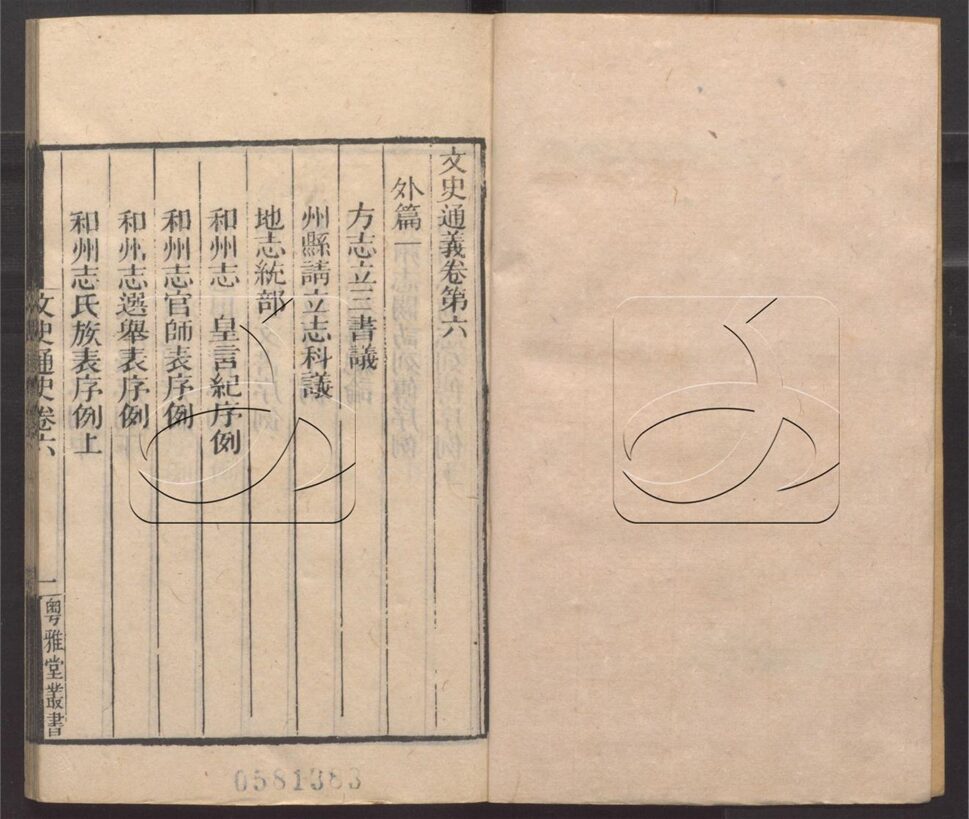 文史通義卷第六
外篇一
方志立三書議
州縣請立志科議
地志統部
和州志 皇言紀序例
和州志官師表序例
和州志選舉表序例
和州志氏族表序例上
文史通史卷六
一
粵雅堂叢書
0581383